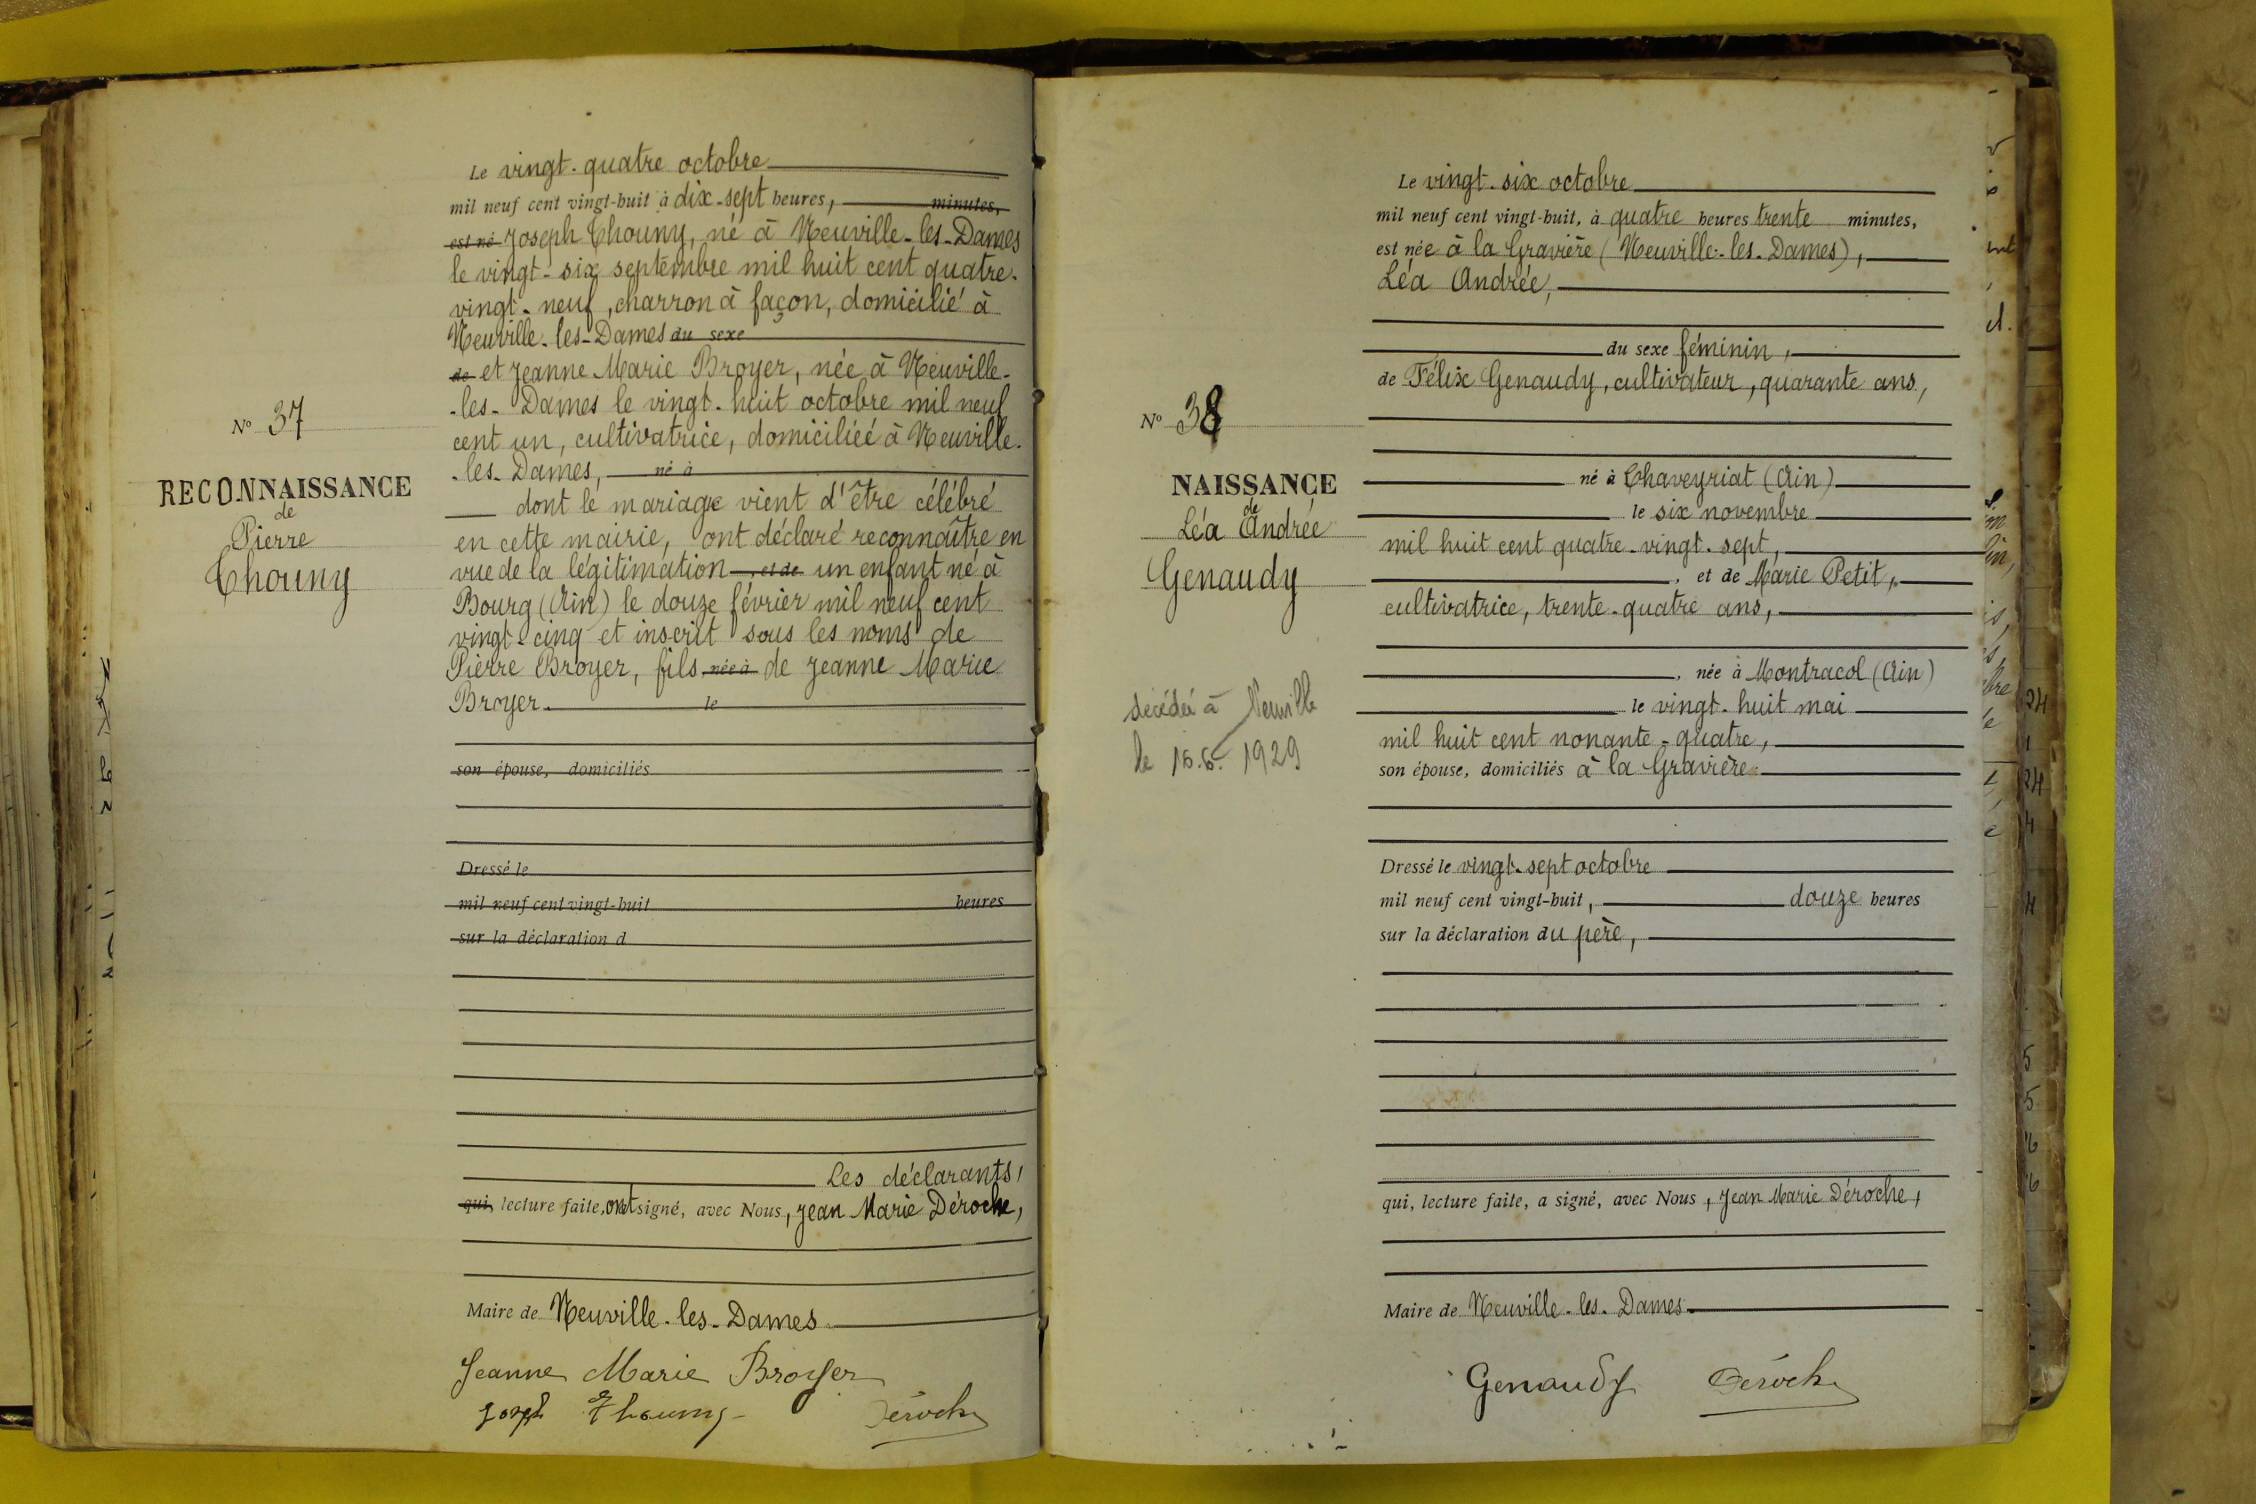 Le vingt-quatre octobre
mil neuf cent vingt-huit à dix-sept heures, minutes,
est né Joseph Thouny, né à Neuville-les-Dames
le vingt-six septembre mil huit cent quatre-
vingt-neuf, charron à façon, domicilié à
Neuville-les-Dames du sexe
de et Jeanne Marie Broyer, née à Neuville-
-les-Dames le vingt-huit octobre mil neuf
cent un, cultivatrice, domiciliée à Neuville-
-les-Dames, né à
dont le mariage vient d'être célébré
en cette mairie, ont déclaré reconnaître en
vue de la légitimation , et de un enfant né à
Bourg (Ain) le douze février mil neuf cent
vingt-cinq et inscrit sous les noms de
Pierre Broyer, fils née à de Jeanne Marie
Broyer. le
son épouse, domiciliés
Dressé le
mil neuf cent vingt-huit heures
sur la déclaration d
Les déclarants,
qui, lecture faite, ont signé, avec Nous, Jean Marie Déroche,
Maire de Neuville-les-Dames
Jeanne Marie Broyer
Joseph Thouny
Déroche
N° 37
RECONNAISSANCE
de
Pierre
Thouny
Le vingt-six octobre
mil neuf cent vingt-huit, à quatre heures trente minutes,
est née à la Gravière (Neuville-les-Dames),
Léa Andrée,
du sexe féminin,
de Félix Genaudy, cultivateur, quarante ans,
né à Chaveyriat (Ain)
le six novembre
mil huit cent quatre-vingt-sept,
, et de Marie Petit,
cultivatrice, trente-quatre ans,
, née à Montracol (Ain)
le vingt-huit mai
mil huit cent nonante-quatre,
son épouse, domiciliés à la Gravière
Dressé le vingt-sept octobre
mil neuf cent vingt-huit, douze heures
sur la déclaration du père,
qui, lecture faite, a signé, avec Nous, Jean Marie Déroche,
Maire de Neuville-les-Dames
Genaudy Déroche
N° 38
NAISSANCE
de
Léa Andrée
Genaudy
décédée à Neuville
le 1929